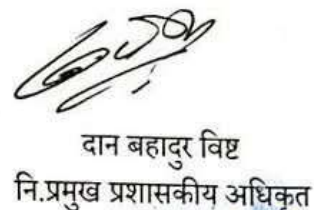 दान बहादुर विष्ट
नि.प्रमुख प्रशासकीय अधिकृत